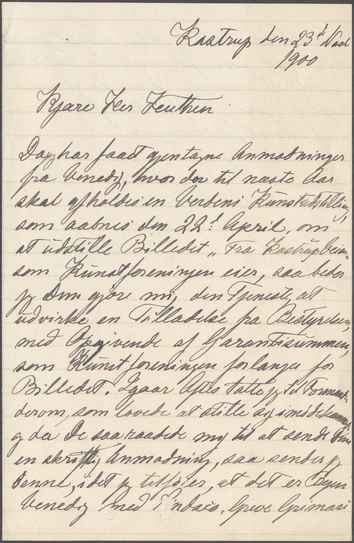 Kastrup den 23d Nov
1900
Kjære Her Zeuthen
Da jeg har faaet gjentagne Anmodninger
fra Venedig, hvor der til næste Aar
skal afholdes en Verdens Kunstudstilling,
som aabnes den 22d April, om
at udstille Billedet "Fra Kastrup
som Kunstforeningen eier, saa beder
jeg Dem gjøre mig den Tjeneste, at
udvirke en Tilladelse fra Bestyrelsen
med Opgivende af Garantisummen,
som Kunstforeningen forlanger for
Billedet. Igaar Aftes talte jeg til
som lovede at stille sig imødekommende
og da De saa raadede mig til at sende
en skriftlig Anmodning, saa sender jeg
denne, idet jeg tilføier, at det er Byen
Venedig med Greve Grimani